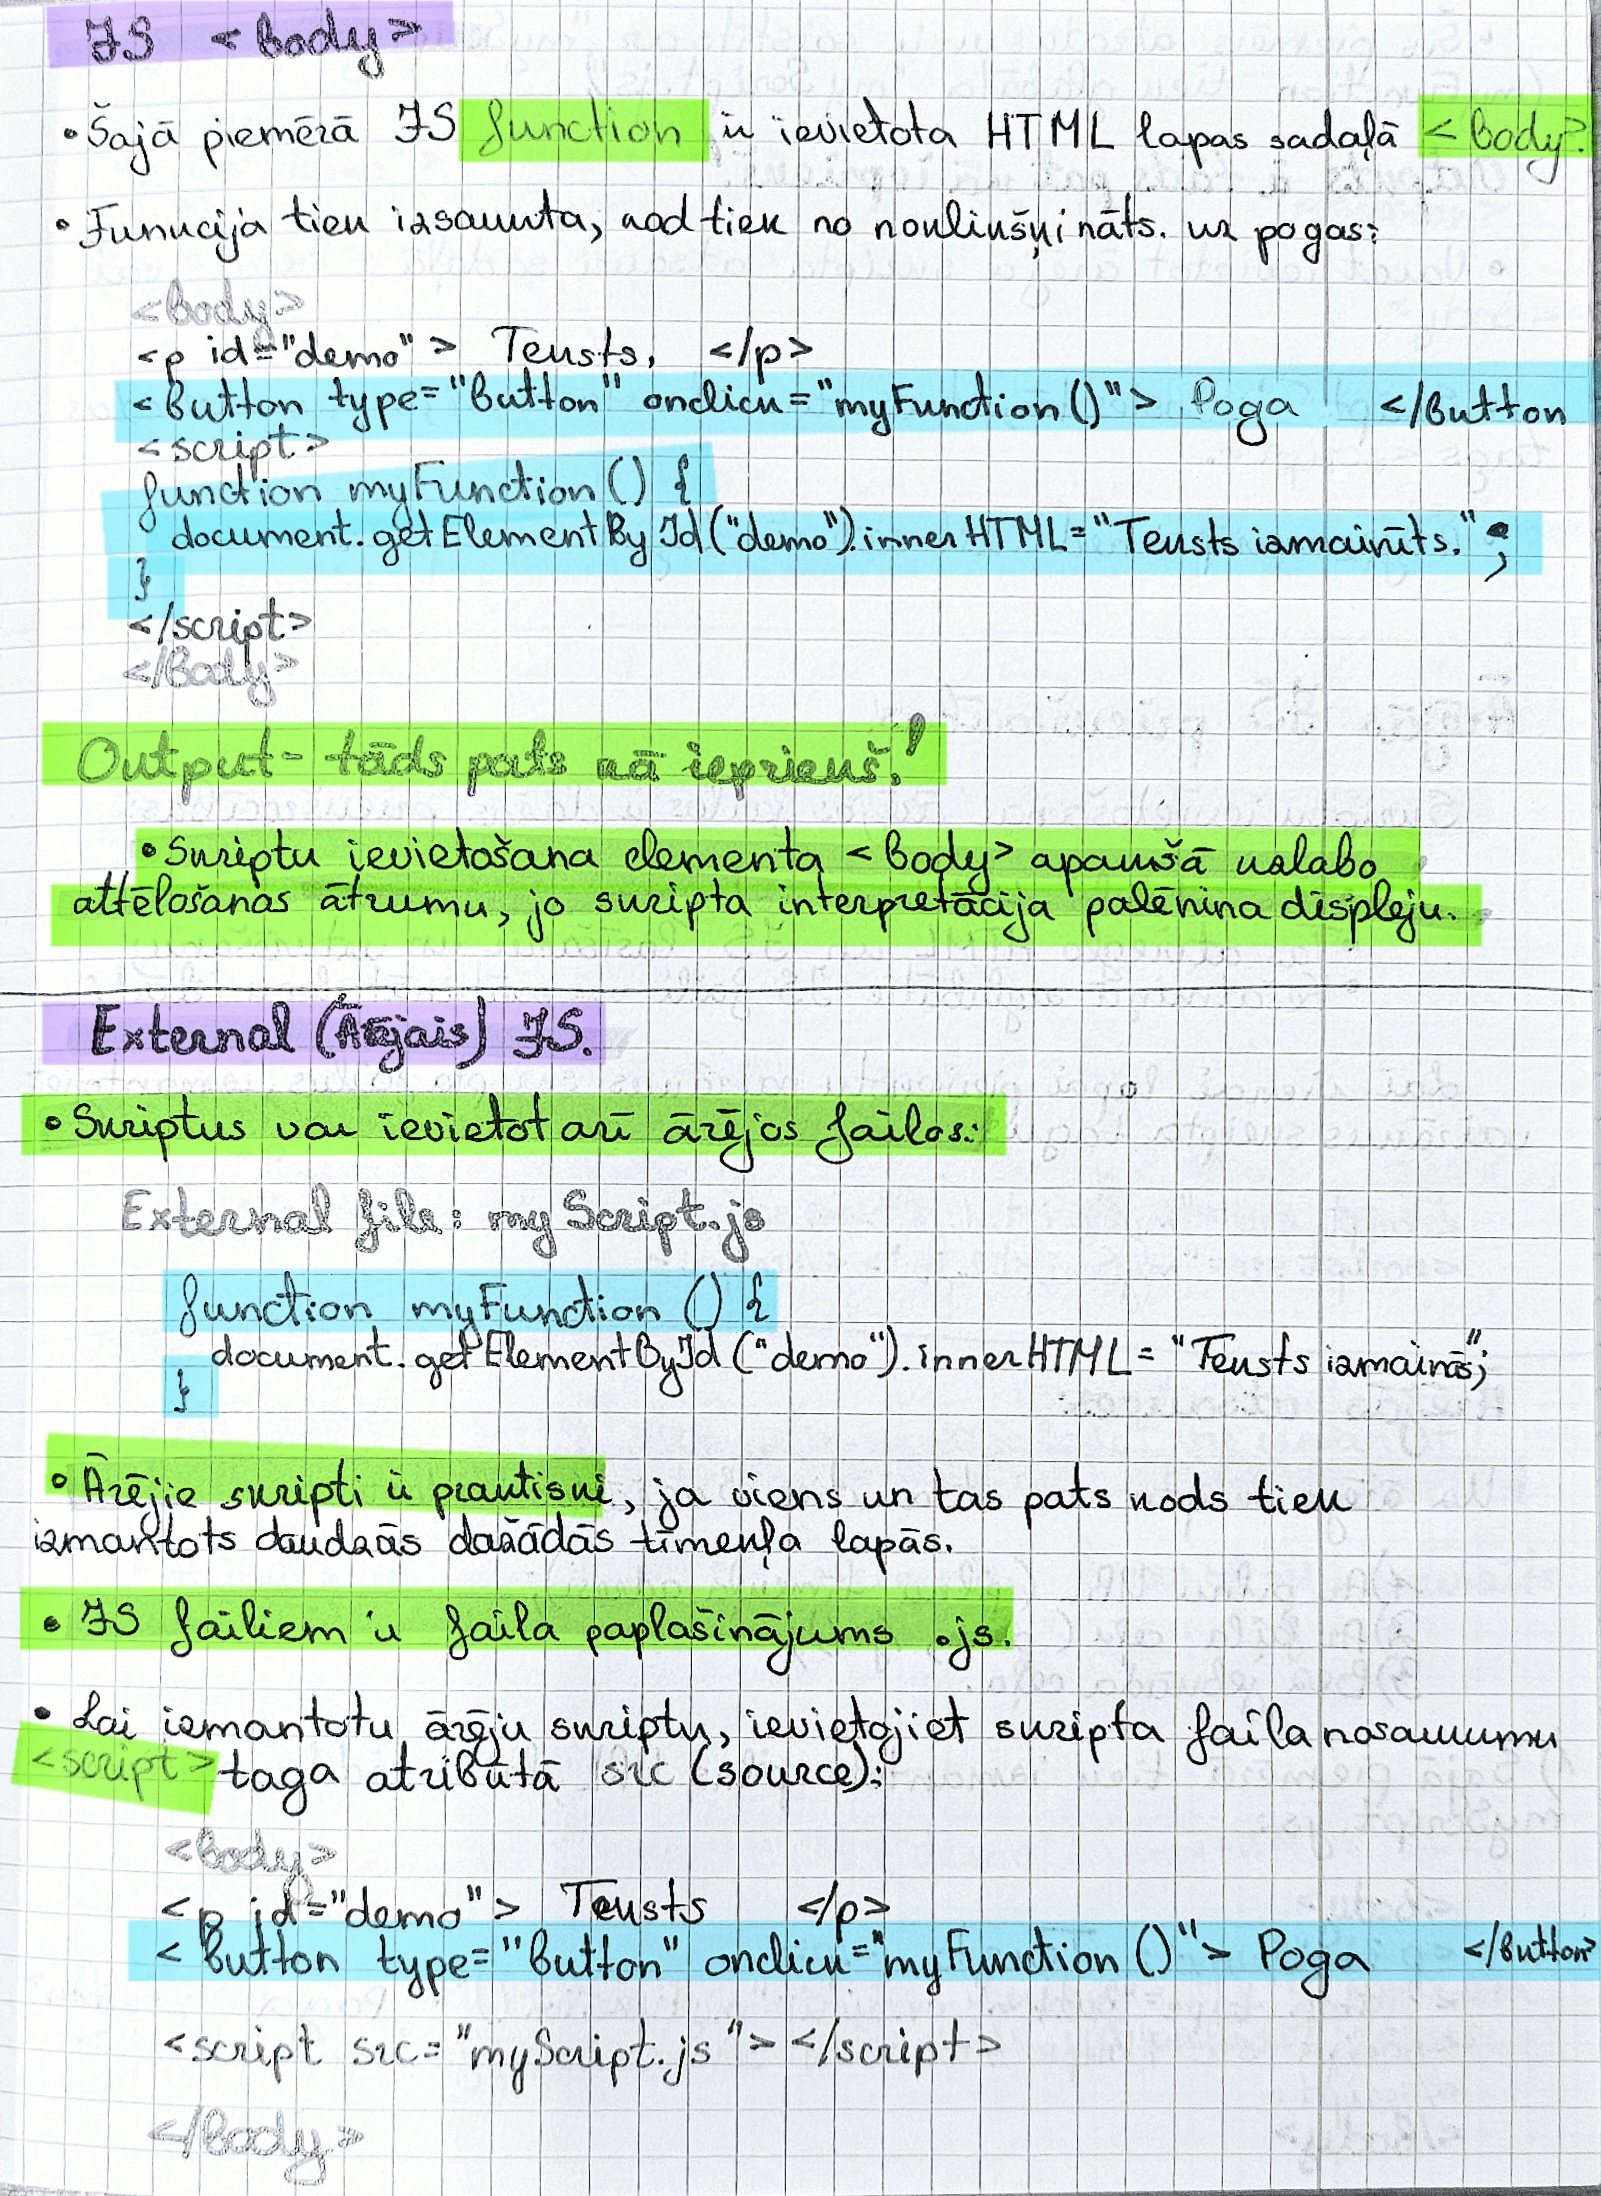 JS <body>
• Šajā piemērā JS function ir ievietota HTML lapas sadaļā <body>
• Funkcija tiek izsaukta, kad tiek no noklikšķināts. uz pogas:
<body>
<p id="demo"> Teksts. </p>
<button type="button" onclick="myFunction()"> Poga </button
<script>
function myFunction() {
document.getElementById("demo").innerHTML="Teksts izmainīts.";
}
</script>
</body>
Output- tāds pats kā iepriekš!
• Skriptu ievietošana elementa <body> apakšā uzlabo
attēlošanas ātrumu, jo skripta interpretācija palēnina displeju.
External (Ārējais) JS.
• Skriptus var ievietot arī ārējos failos:
External file: myScript.js
function myFunction () {
document.getElementById("demo").innerHTML= "Teksts izmainās";
}
• Ārējie skripti ir praktiski, ja viens un tas pats kods tiek
izmantots daudzās dažādās tīmekļa lapās.
• JS failiem ir faila paplašinājums .js.
• Lai izmantotu ārēju skriptu, ievietojiet skripta faila nosaukumu
<script> taga atribūtā src (source):
<body>
<p id="demo"> Teksts </p>
<button type="button" onclick="myFunction ()"> Poga </button>
<script src="myScript.js"></script>
</body>